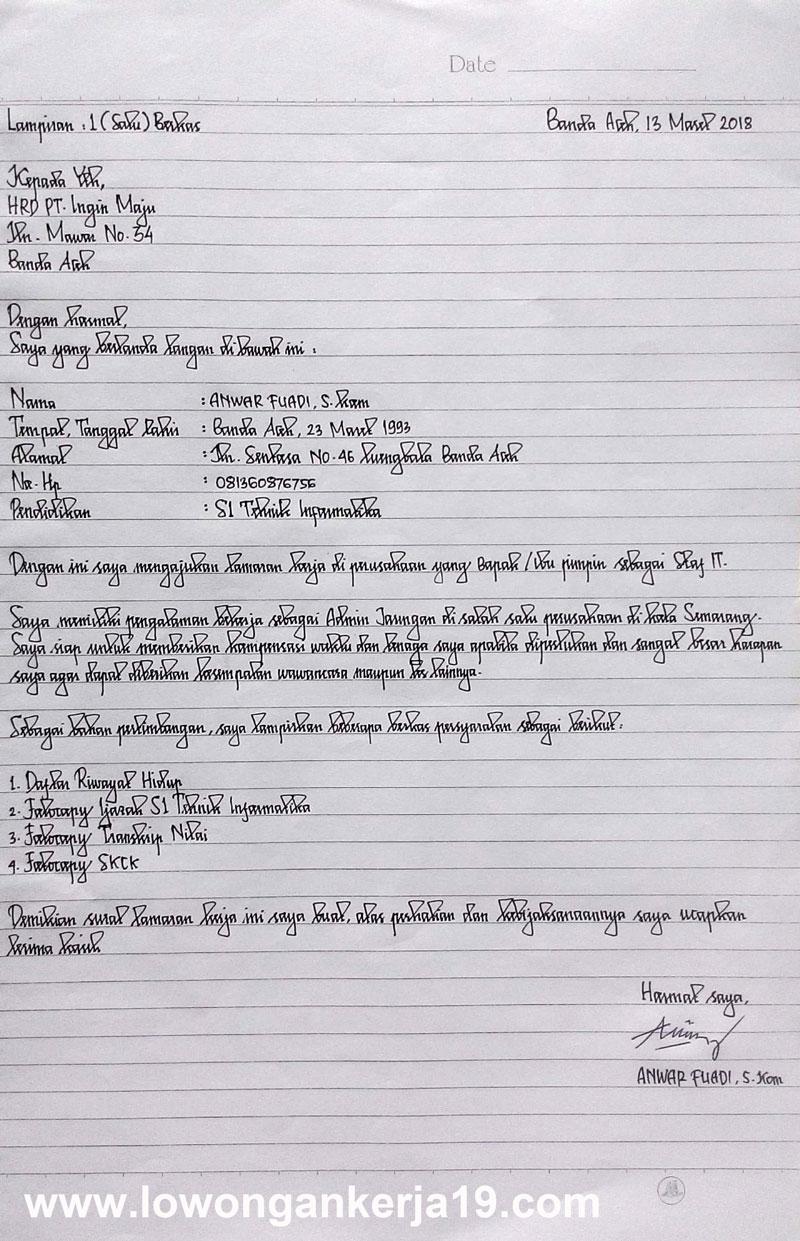 Date
Lampiran : 1 (Satu) Berkas Banda Aceh, 13 Maret 2018
Kepada Yth,
HRD PT. Ingin Maju
Jln. Mawar No. 54
Banda Aceh
Dengan hormat,
Saya yang bertanda tangan di bawah ini :
Nama : ANWAR FUADI, S. kom
Tempat, Tanggal Lahir : Banda Aceh, 23 Maret 1993
Alamat : Jln. Sentosa No. 46 Luengbata Banda Aceh
No. Hp : 081360876756
Pendidikan : S1 Teknik Informatika
Dengan ini saya mengajukan lamaran kerja di perusahaan yang Bapak / Ibu pimpin sebagai Staf IT.
Saya memiliki pengalaman bekerja sebagai Admin Jaringan di salah satu perusahaan di kota Semarang.
Saya siap untuk memberikan kompensasi waktu dan tenaga saya apabila diperlukan dan sangat besar harapan
saya agar dapat diberikan kesempatan wawancara maupun tes lainnya.
Sebagai bahan pertimbangan, saya lampirkan beberapa berkas persyaratan sebagai berikut:
1. Daftar Riwayat Hidup
2. Fotocopy Ijazah S1 Teknik Informatika
3. Fotocopy Transkip Nilai
4. Fotocopy SKCK
Demikian surat lamaran kerja ini saya buat, atas perhatian dan kebijaksanaannya saya ucapkan
terima kasih
Hormat saya,
ANWAR FUADI, S. Kom
www.lowongankerja19.com